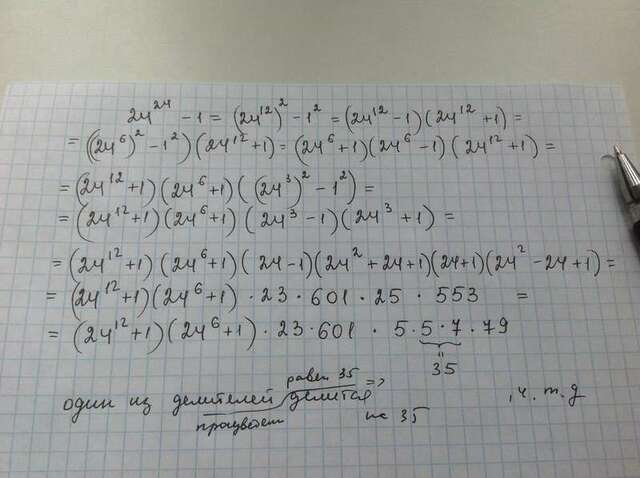 24²⁴ - 1 = (24¹²)² - 1² = (24¹² - 1)(24¹² + 1) =
= ((24⁶)² - 1²)(24¹² + 1) = (24⁶ + 1)(24⁶ - 1)(24¹² + 1) =
= (24¹² + 1)(24⁶ + 1)((24³)² - 1²) =
= (24¹² + 1)(24⁶ + 1)(24³ - 1)(24³ + 1) =
= (24¹² + 1)(24⁶ + 1)(24 - 1)(24² + 24 + 1)(24 + 1)(24² - 24 + 1) =
= (24¹² + 1)(24⁶ + 1) · 23 · 601 · 25 · 553 =
= (24¹² + 1)(24⁶ + 1) · 23 · 601 · 5 · 5 · 7 · 79
=
35
равен 35 =>
один из делителей делится , ч. т. д
на 35